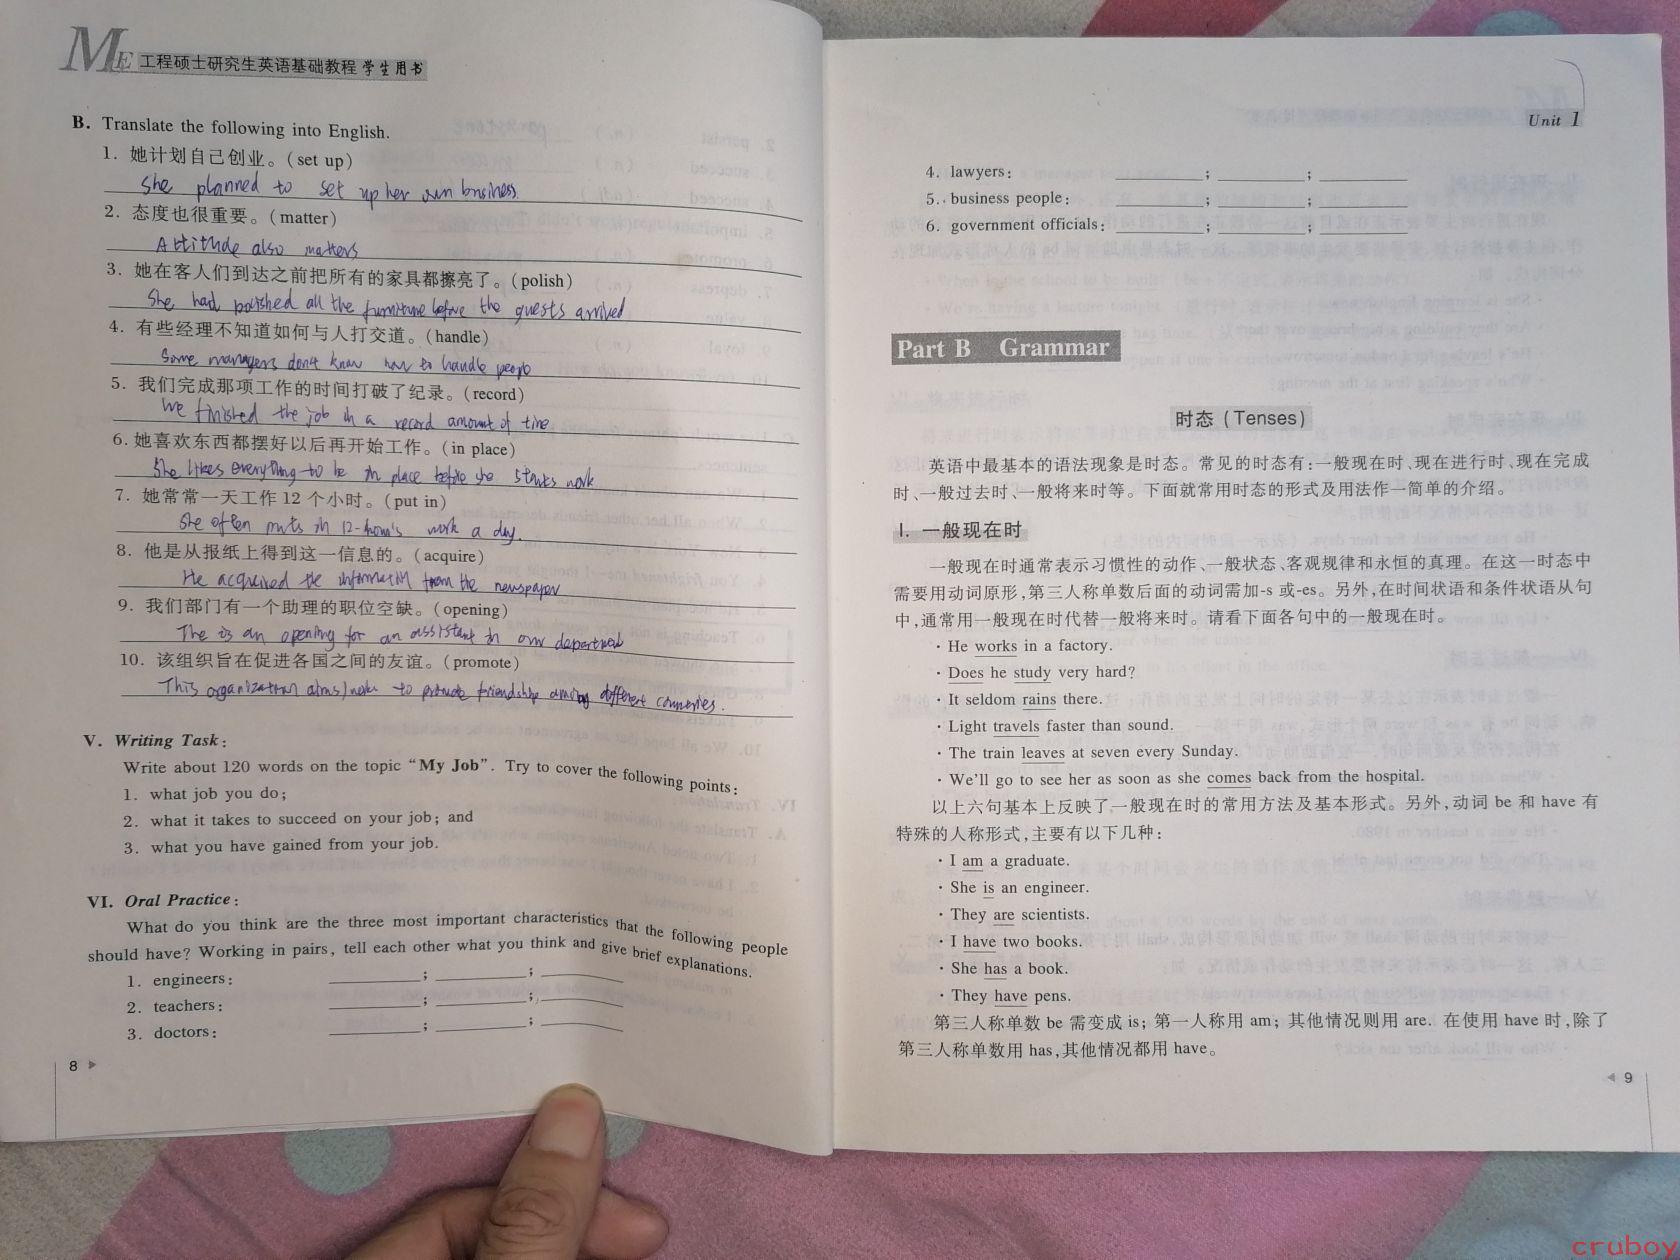 ME 工程硕士研究生英语基础教程 学生用书
B. Translate the following into English.
1. 她计划自己创业。(set up)
She planned to set up her own business.
2. 态度也很重要。(matter)
Attitude also matters
3. 她在客人们到达之前把所有的家具都擦亮了。(polish)
She had polished all the furniture before the guests arrived
4. 有些经理不知道如何与人打交道。(handle)
Some managers don't know how to handle people
5. 我们完成那项工作的时间打破了纪录。(record)
We finished the job in a record amount of time
6. 她喜欢东西都摆好以后再开始工作。(in place)
She likes everything to be in place before she starts work
7. 她常常一天工作 12 个小时。(put in)
She often puts in 12-hours work a day.
8. 他是从报纸上得到这一信息的。(acquire)
He acquired the information from the newspaper
9. 我们部门有一个助理的职位空缺。(opening)
The is an opening for an assistant in our department
10. 该组织旨在促进各国之间的友谊。(promote)
This organization aims to promote friendship among different countries.
V. Writing Task:
Write about 120 words on the topic “My Job”. Try to cover the following points:
1. what job you do;
2. what it takes to succeed on your job; and
3. what you have gained from your job.
VI. Oral Practice:
What do you think are the three most important characteristics that the following people
should have? Working in pairs, tell each other what you think and give brief explanations.
1. engineers: ; ;
2. teachers: ; ;
3. doctors: ; ;
8
Unit 1
4. lawyers: ; ;
5. business people: ; ;
6. government officials: ; ;
Part B Grammar
时态 (Tenses)
英语中最基本的语法现象是时态。常见的时态有:一般现在时、现在进行时、现在完成
时、一般过去时、一般将来时等。下面就常用时态的形式及用法作一简单的介绍。
I. 一般现在时
一般现在时通常表示习惯性的动作、一般状态、客观规律和永恒的真理。在这一时态中
需要用动词原形,第三人称单数后面的动词需加-s 或-es。另外,在时间状语和条件状语从句
中,通常用一般现在时代替一般将来时。请看下面各句中的一般现在时。
· He works in a factory.
· Does he study very hard?
· It seldom rains there.
· Light travels faster than sound.
· The train leaves at seven every Sunday.
· We'll go to see her as soon as she comes back from the hospital.
以上六句基本上反映了一般现在时的常用方法及基本形式。另外,动词 be 和 have 有
特殊的人称形式,主要有以下几种:
· I am a graduate.
· She is an engineer.
· They are scientists.
· I have two books.
· She has a book.
· They have pens.
第三人称单数 be 需变成 is; 第一人称用 am; 其他情况则用 are. 在使用 have 时,除了
第三人称单数用 has,其他情况都用 have。
9
cruboy